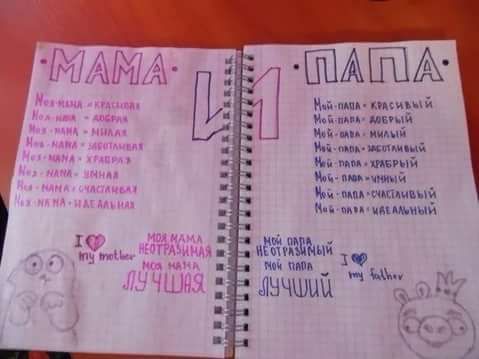 МАМА
Моя-мама = красивая
Моя-мама = добрая
Моя-мама = милая
Моя-мама = заботливая
Моя-мама = храбрая
Моя-мама = умная
Моя-мама = счастливая
Моя-мама = идеальная
I
my mother
МОЯ МАМА
НЕОТРАЗИМАЯ
МОЯ МАМА
ЛУЧШАЯ
И
ПАПА
Мой-папа = красивый
Мой-папа = добрый
Мой-папа = милый
Мой-папа = заботливый
Мой-папа = храбрый
Мой-папа = умный
Мой-папа = счастливый
Мой-папа = идеальный
МОЙ ПАПА
НЕОТРАЗИМЫЙ
МОЙ ПАПА
ЛУЧШИЙ
I
my father